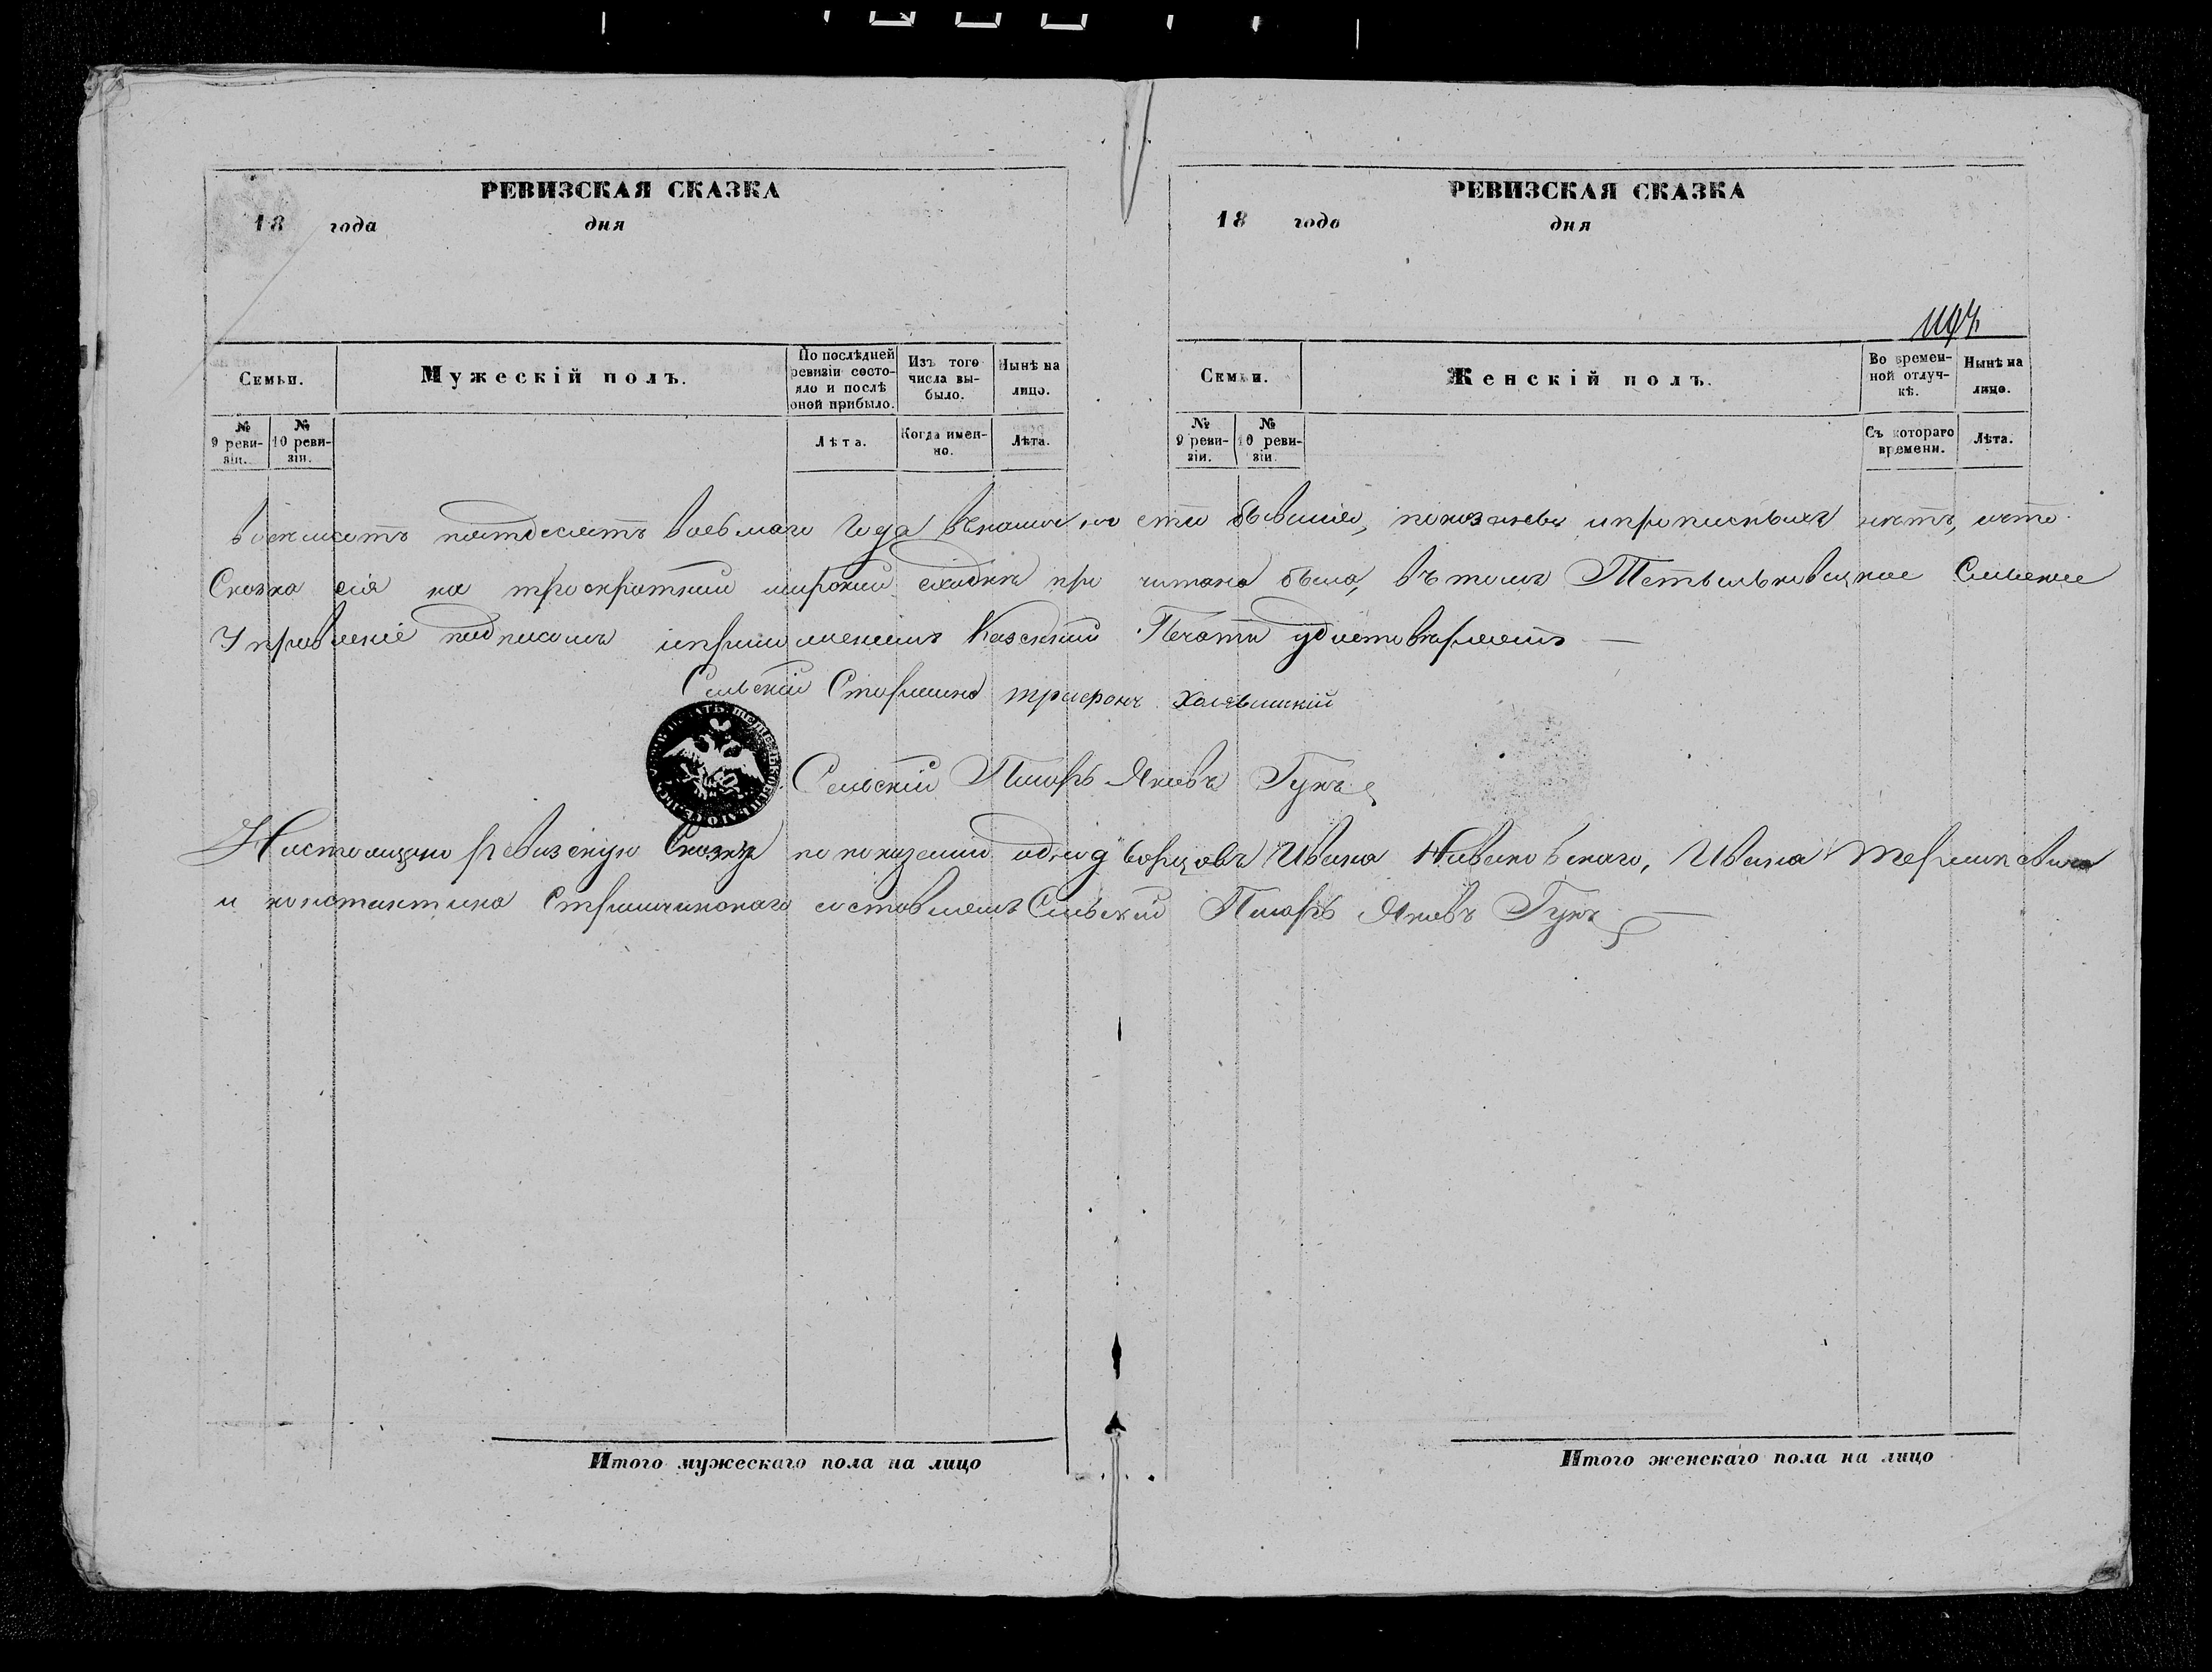 РЕВИЗСКАЯ СКАЗКА
18 года дня
Семьи.
Мужескій полъ.
По послѣдней ревизіи состояло и послѣ оной прибыло.
Изъ того числа выбыло.
Нынѣ на лицо.
№ 9 ревизіи.
№ 10 ревизіи.
Лѣта.
Когда именно.
Лѣта.
РЕВИЗСКАЯ СКАЗКА
18 года дня
Семьи.
Женскій полъ.
Во временной отлучкѣ.
Нынѣ на лицо.
№ 9 ревизіи.
№ 10 ревизіи.
Съ котораго времени.
Лѣта.
восемсотъ пятдесятъ восьмаго Года бывшіе, показаны и прописныхъ нетъ, и что
Сказка сія на троекратний мирский сходкѣ при читана была, въ томъ Сельское
Управленіе подписомъ и приложенемъ Казенний Печати удостовѣряетъ —
Сельскій Старшина трифонъ
Сельскій Писаръ Яковъ Гукъ
Настоящую ревизскую Сказку по показанію однодворцовъ Ивана Ивана
и константина составлялъ Сельский Писаръ Яковъ Гукъ —
Итого мужескаго пола на лицо
Итого женскаго пола на лицо